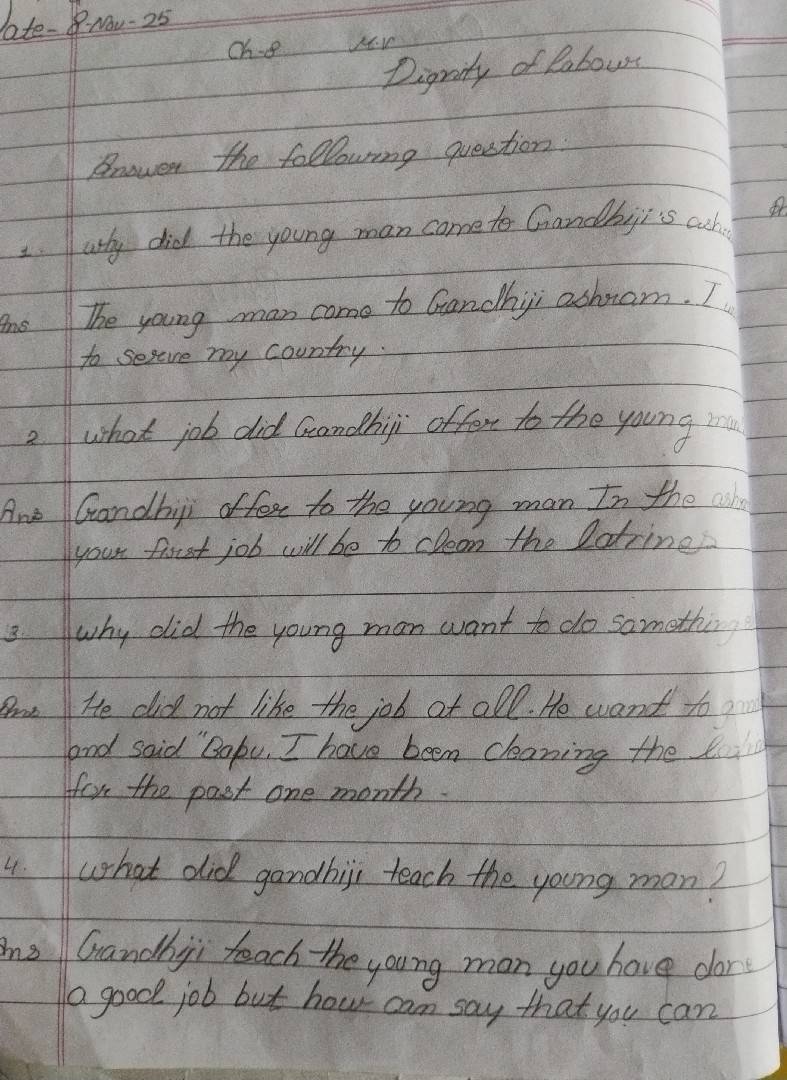 Date- 8-Nov-25
Ch-8 M.V
Dignity of Labour
Answer the following question:
1. why did the young man come to Gandhiji's
Ans The young man come to Gandhiji ashram. I
to serve my country.
2 what job did Gandhiji offer to the young
Ans Gandhiji offer to the young man In the
your first job will be to clean the latrines
3 why did the young man want to do something
Ans He did not like the job at all. He want to
and said "Bapu. I have been cleaning the
for the past one month.
4. what did gandhiji teach the young man?
Ans Gandhiji teach the young man you have done
a good job but how can say that you can